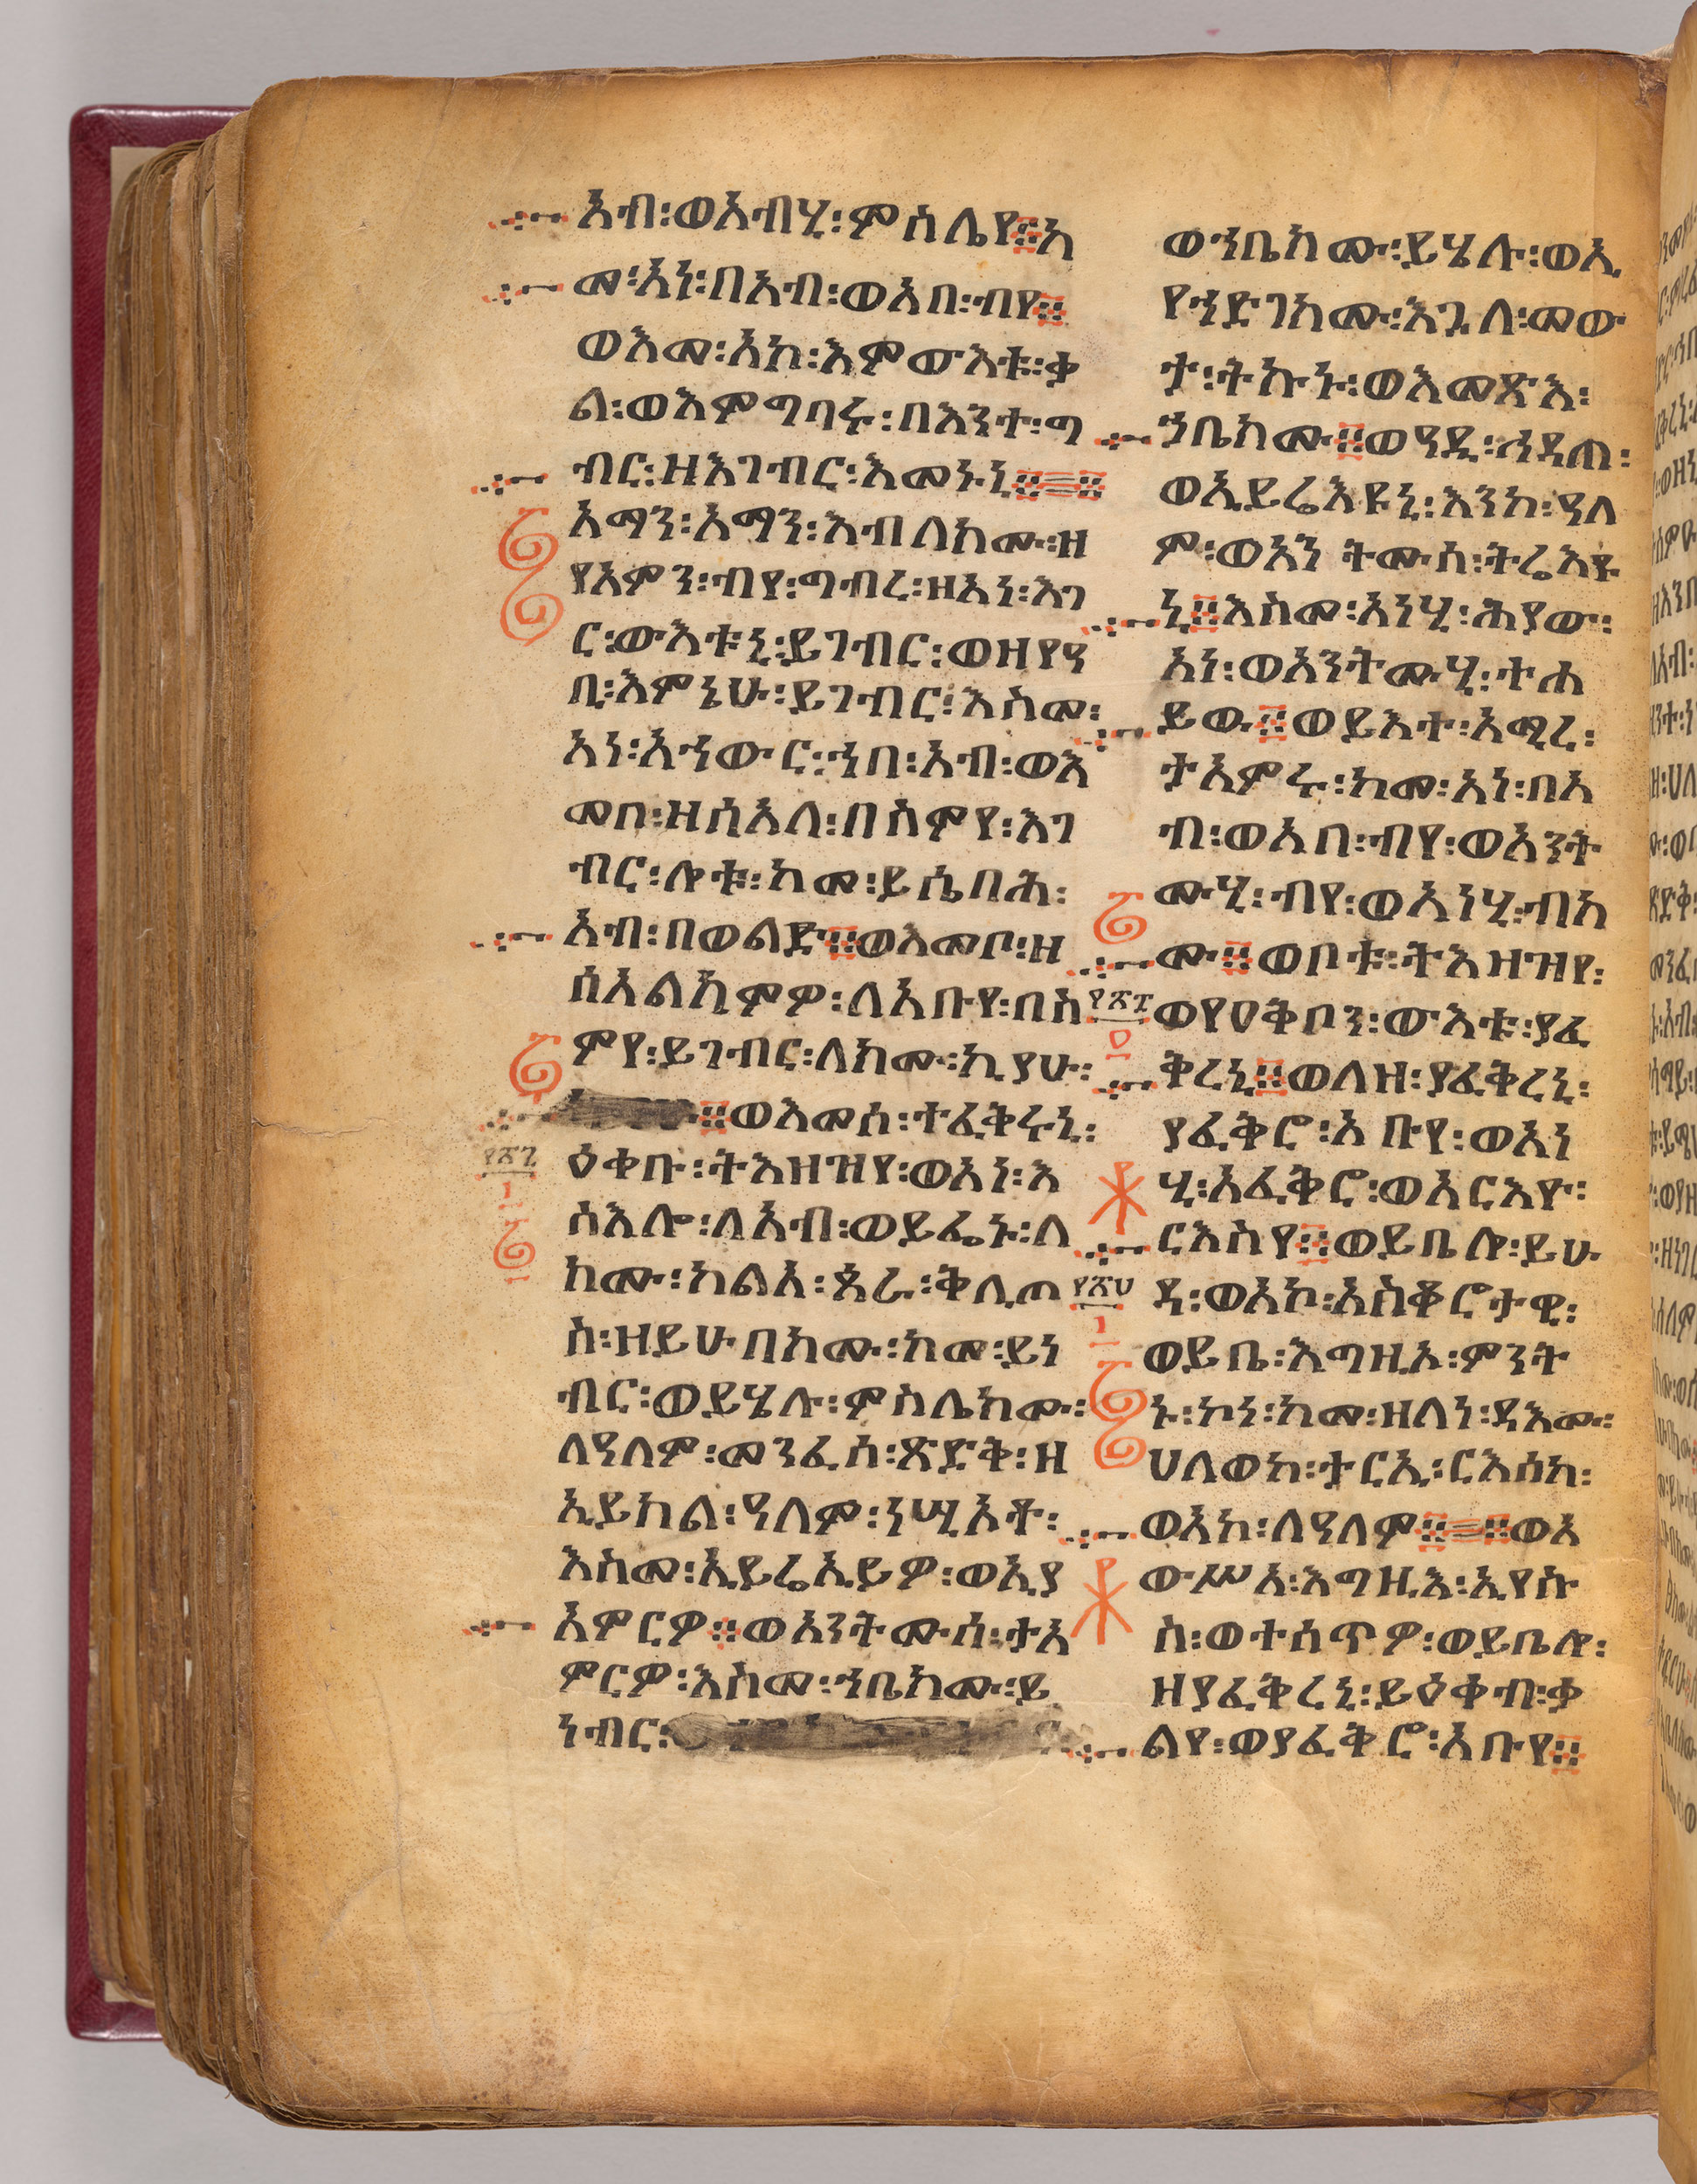 አብ፡ወአብሂ፡ምስሌየ፨አ
መ፡አነ፡በአብ፡ወአበ፡ብየ፨
ወእመ፡አኮ፡እምውእቱ፡ቃ
ል፡ወእምግባሩ፡በእንተ፡ግ
ብር፡ዘእገብር፡እመኑኒ፨፨
አማን፡አማን፡እብለክሙ፡ዘ
የአምን፡ብየ፡ግብረ፡ዘአነ፡እገ
ር፡ውእቱኒ፡ይገብር፡ወዘየዓ
ቢ፡እምኔሁ፡ይገብር፡እስመ፡
አነ፡አኀውር፡ኀበ፡አብ፡ወእ
መቦ፡ዘሰአለ፡በስምየ፡እገ
ብር፡ሎቱ፡ከመ፡ይሴባሕ፡
አብ፡በወልድ፨ወእመቦ፡ዘ
ሰአልክምዎ፡ለአቡየ፡በስ
ምየ፡ይገብር፡ለክሙ፡ኪያሁ፡
፨ወእመሰ፡ተፈቅሩኒ፡
ዕቀቡ፡ትእዘዝየ፡ወአነ፡እ
ስእሎ፡ለአብ፡ወይፌኑ፡ለ
ክሙ፡ካልአ፡ጰራ፡ቅሊጦ
ስ፡ዘይሁበክሙ፡ከመ፡ይነ
ብር፡ወይሄሉ፡ምስሌክሙ፡
ለዓለም፡መንፈሰ፡ጽድቅ፡ዘ
ኢይክል፡ዓለም፡ነሢኦቶ፡
እስመ፡ኢይሬኢይዎ፡ወኢያ
አምርዎ፨ወአንትሙሰ፡ታአ
ምርዎ፡እስመ፡ኀቤክሙ፡ይ
ነብር፡
ወኀቤክሙ፡ይሄሉ፡ወኢ
የኀድገክሙ፡እጓለ፡መው
ታ፡ትኩኑ፡ወእመጽእ፡
ኀቤክሙ፨ወዓዲ፡ኅዳጠ፡
ወኢይሬእዩኒ፡እንከ፡ዓለ
ም፡ወአን ትሙሰ፡ትሬእዩ
ኒ፨እስመ፡አነሂ፡ሕያው፡
አነ፡ወአንትሙሂ፡ተሐ
ይው፨ወይእተ፡አሚረ፡
ትአምሩ፡ከመ፡አነ፡በአ
ብ፡ወአበ፡ብየ፡ወአንት
ሙሂ፡ብየ፡ወአነሂ፡ብክ
ሙ፨ወቦቱ፡ትእዛዝየ፡
ወየዐቅቦን፡ውእቱ፡ያፈ
ቅረኒ፨ወለዘ፡ያፈቅረኒ፡
ያፈቅሮ፡አ ቡየ፡ወአን
ሂ፡አፈቅሮ፡ወአርእዮ፡
ርእስየ፨ወይቤሎ፡ይሁ
ዳ፡ወአኮ፡አስቆሮታዊ፡
ወይቤ፡እግዚኦ፡ምንት
ኑ፡ኮነ፡ከመ፡ዘለነ፡ዳእሙ፡
ሀለወከ፡ታርኢ፡ርእሰከ፡
ወአኮ፡ለዓለም፨፨ወአ
ውሥአ፡እግዚእ፡ኢየሱ
ስ፡ወተሰጥዎ፡ወይቤሎ፡
ዘያፈቅረኒ፡ይዕቀብ፡ቃ
ልየ፡ወያፈቅሮ፡አቡየ፨